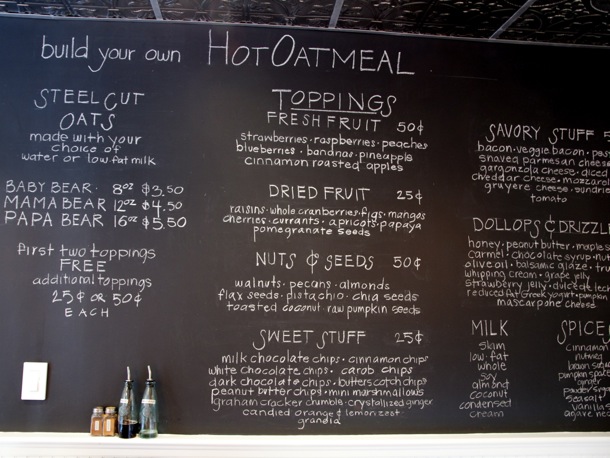 build your own HOTOATMEAL
STEEL CUT
OATS
made with your
choice of
water or low-fat milk
BABY BEAR · 8oz $3.50
MAMA BEAR 12oz $4.50
PAPA BEAR 16oz $5.50
first two toppings
FREE
additional toppings
25¢ OR 50¢
EACH
TOPPINGS
FRESH FRUIT 50¢
strawberries · raspberries · peaches
blueberries · bananas · pineapple
cinnamon roasted apples
DRIED FRUIT 25¢
raisins · whole cranberries · figs · mangos
cherries · currants · apricots · papaya
pomegranate seeds
NUTS & SEEDS 50¢
walnuts · pecans · almonds
flax seeds · pistachio · chia seeds
toasted coconut · raw pumpkin seeds
SWEET STUFF 25¢
milk chocolate chips · cinnamon chips
white chocolate chips · carob chips
dark chocolate chips · butterscotch chips
peanut butter chips · mini marshmallows
graham cracker crumble · crystallized ginger
candied orange & lemon zest
SAVORY STUFF
bacon · veggie bacon ·
shaved parmesan cheese
gargonzola cheese · diced
cheddar cheese ·
gruyere cheese ·
tomato
DOLLOPS & DRIZZLE
honey · peanut butter · maple
carmel · chocolate syrup ·
olive oil · balsamic glaze ·
whipping cream · grape jelly
strawberry jelly · dulce de
reduced fat Greek yogurt ·
mascarpone cheese
MILK
low-fat
whole
soy
almond
coconut
condensed
cream
SPICE
cinnamon
nutmeg
pumpkin
ginger
sea salt
vanilla
agave